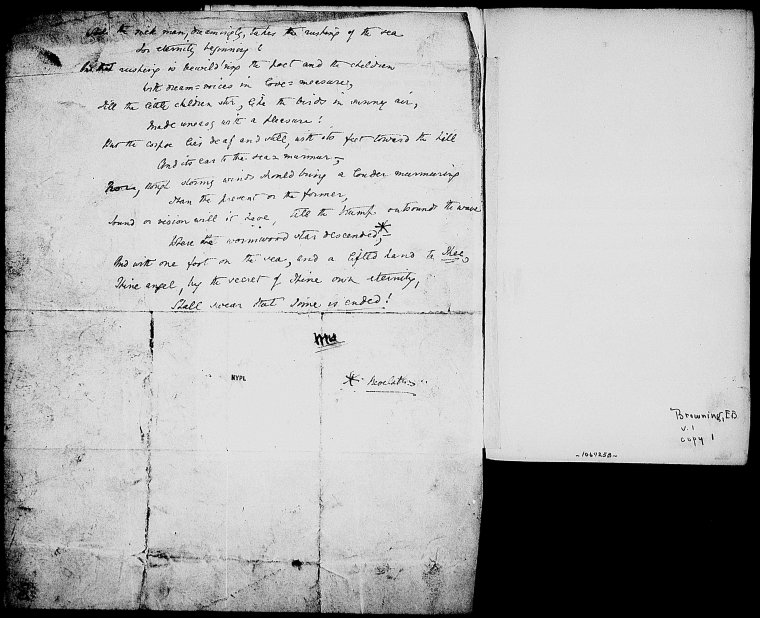 the rich man, dreamingly, takes the rushing of the sea
for eternity beginning!
rushing is bewild'ring the poet and the children
With dream=voices in love=measure;
Till the little children stir, like the birds in sunny air,
Made uneasy with a pleasure!
But the corpse lies deaf and still, with its feet toward the hill
And its ear to the sea=murmur=
tho' stormy winds should bring a louder murmuring
Than the present or the former,
Sound or vision will it have, till the trump outbounds the wave
Where the wormwood star descended,*
And with one foot on the sea, and a lifted hand to Thee,
Thine angel, by the secret of Thine own eternity,
Shall swear that Time is ended!
NYPL
* Revelations
Browning, E B
v. 1
copy 1
-1069258-